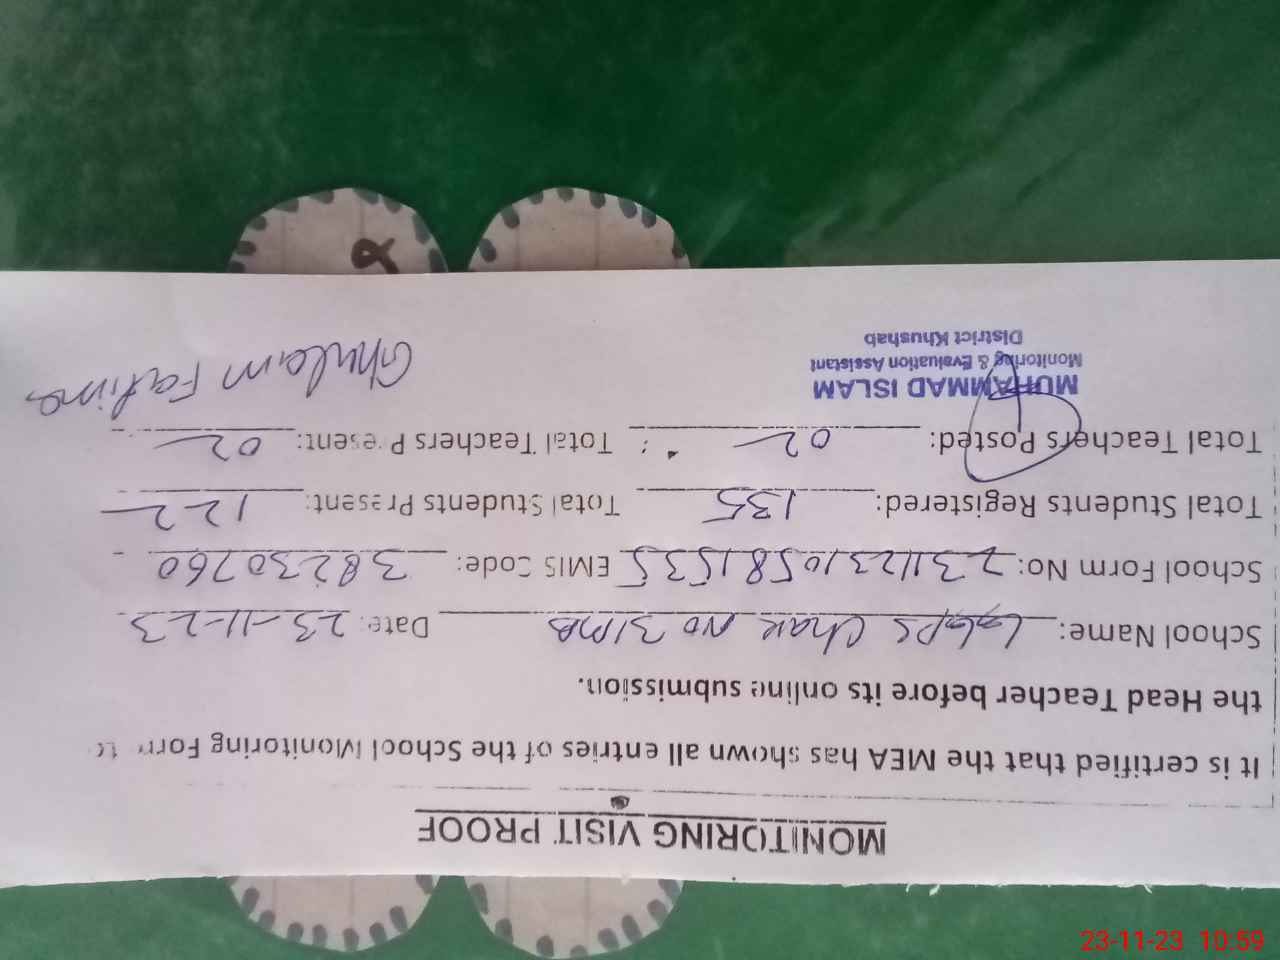 MONITORING VISIT PROOF
It is certified that the MEA has shown all entries of the School Monitoring Form to
the Head Teacher before its online submission.
School Name: GGPS Chak No 31MB Date: 23-11-23
School Form No: 23112310581535 EMIS Code: 38230760
Total Students Registered: 135 Total Students Present: 122
Total Teachers Posted: 02 Total Teachers Present: 02
MUHAMMAD ISLAM
Monitoring & Evaluation Assistant
District Khushab
Ghulam Fatima
23-11-23 10:59